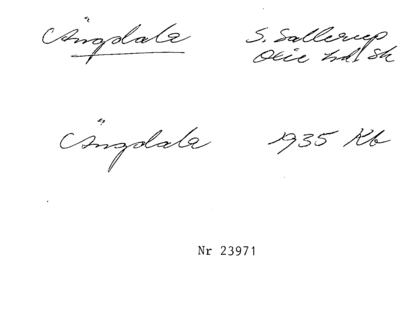 Ängdala S. Sallerup
Oxie hd. Sk
Ängdala 1935 Kb
Nr 23971